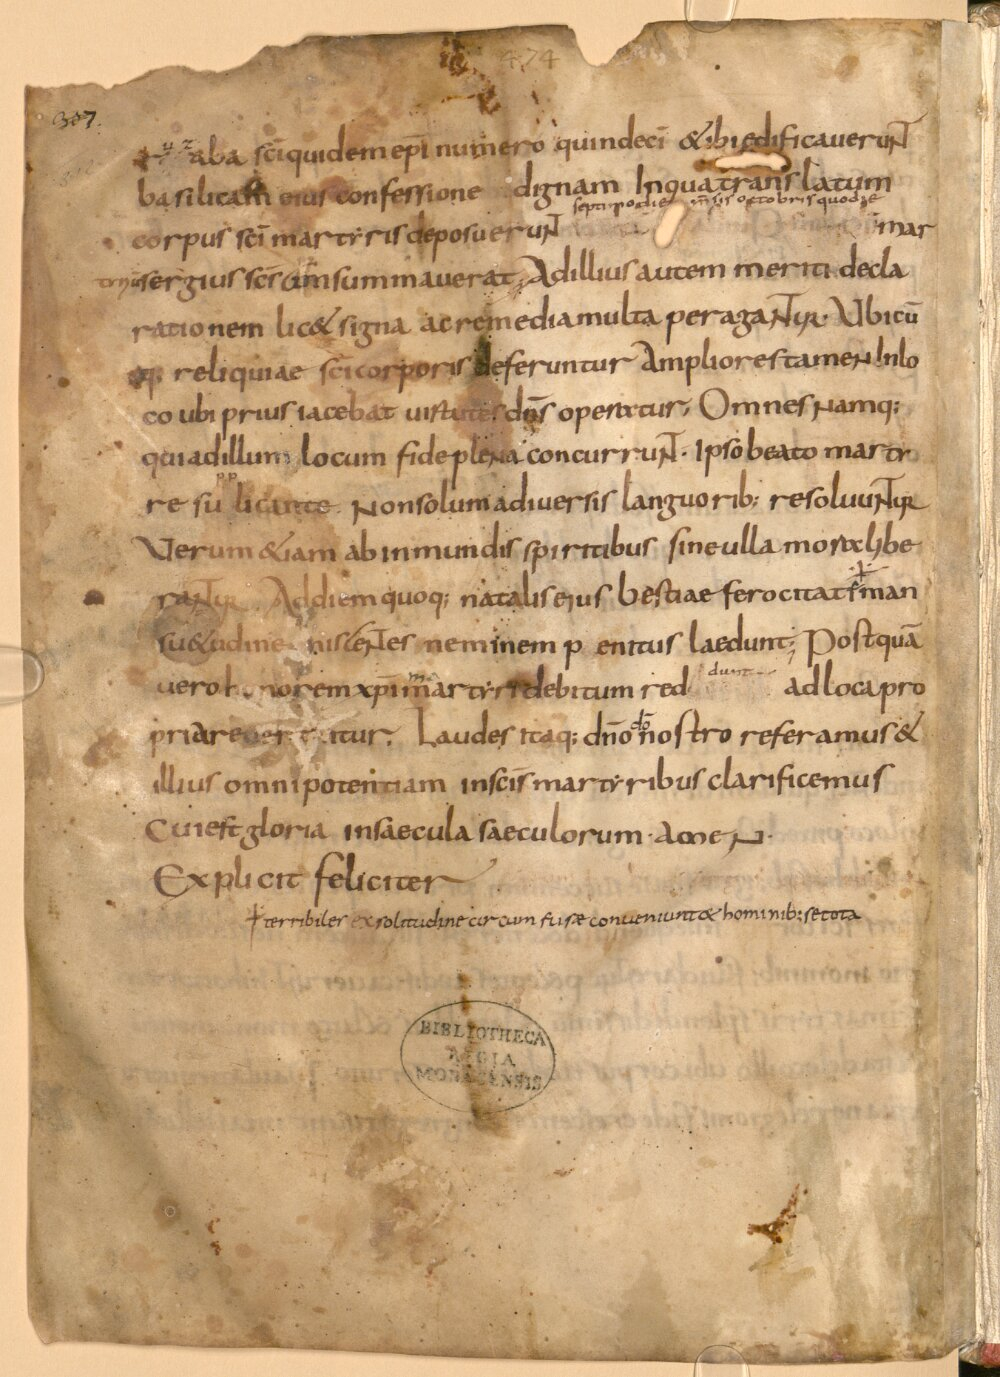 474
337
aba sc̄i quidem ep̄i numero quindeci & ibi edificaverunt
basilicam eius confessione dignam In qua translatum
septimo die m̄sis octobris quo die
corpus sc̄i martyris deposuerunt mar
sergius sc̄s consummaverat; Ad illius autem meriti decla
rationem lic& signa ac remedia multa peragantur. Ubicū
q; reliquiae sc̄i corporis deferuntur Ampliores tamen In lo
co ubi prius iacebat uirtutes dn̄s operatur; Omnes namq;
qui ad illum locum fide plena concurrunt. Ipso beato marty
re supplicante Non solum a diversis languorib; resoluuntur
Verum &iam ab inmundis spiritibus sine ulla mora libe
rantur. Ad diem quoq; natalis eius bestiae ferocitatē man
su&udine nescientes neminem penitus laedunt; Postquā
uero honorem xp̄i martyri debitum reddunt ad loca pro
pria revertuntur. Laudes itaq; dn̄o dō nostro referamus &
illius omnipotentiam in sc̄is martyribus clarificemus
Cui est gloria in saecula saeculorum. amen.
Explicit feliciter
† terribiles ex solitudine circumfusæ conveniunt & hominib; se tota
BIBLIOTHECA
REGIA
MONACENSIS